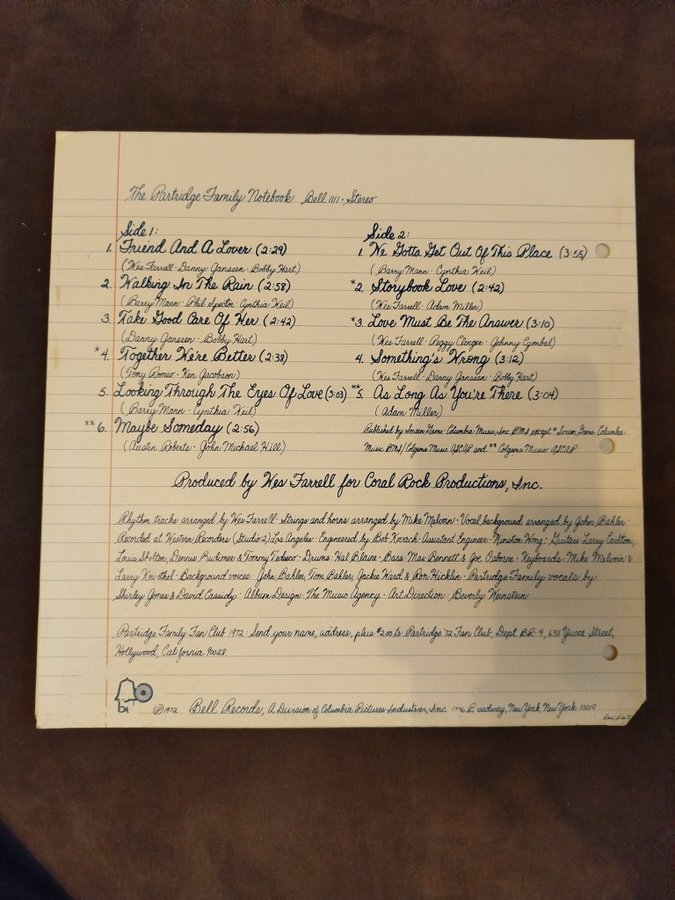 The Partridge Family Notebook Bell 1111 · Stereo
Side 1:
1. Friend And A Lover (2:29)
(Wes Farrell · Danny Janssen · Bobby Hart)
2. Walking In The Rain (2:58)
(Barry Mann · Phil Spector · Cynthia Weil)
3. Take Good Care Of Her (2:42)
(Danny Janssen · Bobby Hart)
*4. Together We're Better (2:38)
(Tony Romeo · Ken Jacobson)
5. Looking Through The Eyes Of Love (3:03)
(Barry Mann · Cynthia Weil)
**6. Maybe Someday (2:56)
(Austin Roberts · John Michael Hill)
Side 2:
1. We Gotta Get Out Of This Place (3:55)
(Barry Mann · Cynthia Weil)
*2. Storybook Love (2:42)
(Wes Farrell · Adam Miller)
*3. Love Must Be The Answer (3:10)
(Wes Farrell · Peggy Clinger · Johnny Cymbal)
4. Something's Wrong (3:12)
(Wes Farrell · Danny Janssen · Bobby Hart)
**5. As Long As You're There (3:04)
(Adam Miller)
Published by Screen Gems-Columbia Music, Inc. BMI except * Screen Gems-Columbia
Music BMI/Colgems Music ASCAP and ** Colgems Music ASCAP
Produced by Wes Farrell for Coral Rock Productions, Inc.
Rhythm tracks arranged by Wes Farrell · Strings and horns arranged by Mike Melvoin · Vocal background arranged by John Bahler ·
Recorded at Western Recorders (Studio 2) Los Angeles · Engineered by Bob Kovach · Assistant Engineer · Winston Wong · Guitars Larry Carlton,
Louis Shelton, Dennis Budimer & Tommy Tedesco · Drums: Hal Blaine · Bass: Max Bennett & Joe Osborne · Keyboards: Mike Melvoin &
Larry Knechtel · Background voices: John Bahler, Tom Bahler, Jackie Ward & Ron Hicklin · Partridge Family vocals by
Shirley Jones & David Cassidy · Album Design: The Music Agency · Art Direction: Beverly Weinstein
Partridge Family Fan Club 1972 · Send your name, address, plus $2.00 to Partridge '72 Fan Club, Dept. BR-4, 6311 Yucca Street,
Hollywood, California 90028
©1972 Bell Records, A Division of Columbia Pictures Industries, Inc. 1776 Broadway, New York, New York 10019